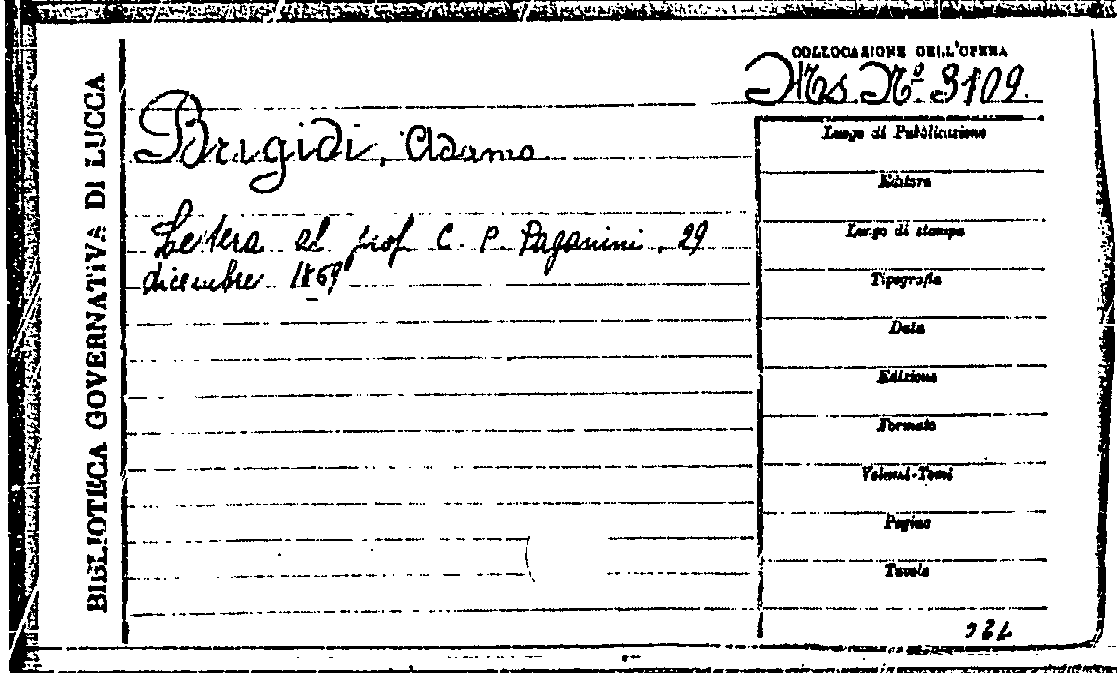 BIBLIOTECA GOVERNATIVA DI LUCCA
COLLOCAZIONE DELL'OPERA
Ms. Nº 3109.
Brigidi, Adamo
Lettera al prof C. P. Paganini, 29
dicembre 1869
Luogo di Pubblicazione
Editore
Luogo di stampa
Tipografia
Data
Edizione
Formato
Volumi-Tomi
Pagine
Tavole